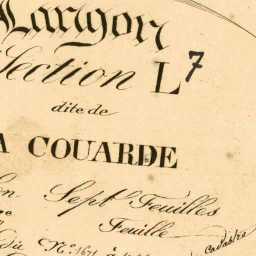 Langon
Section L7
dite de
A COUARDE
en Sept Feuilles
Feuille
du N° 1671 à
Cadastre